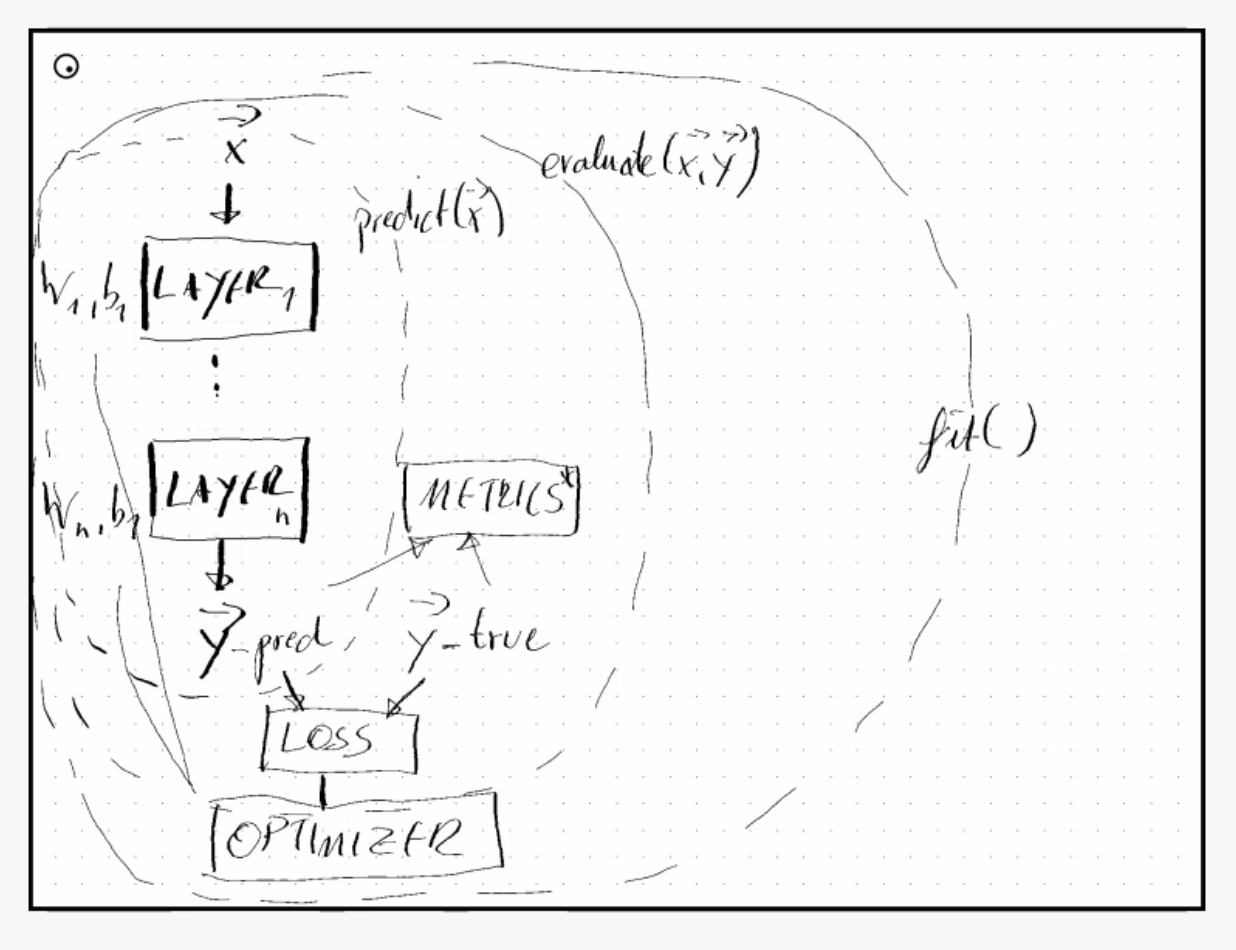 x
evaluate(x, y)
predict(x)
W1, b1
LAYER1
fit( )
Wn, b1
LAYERn
METRICS*
y_pred
y_true
LOSS
OPTIMIZER